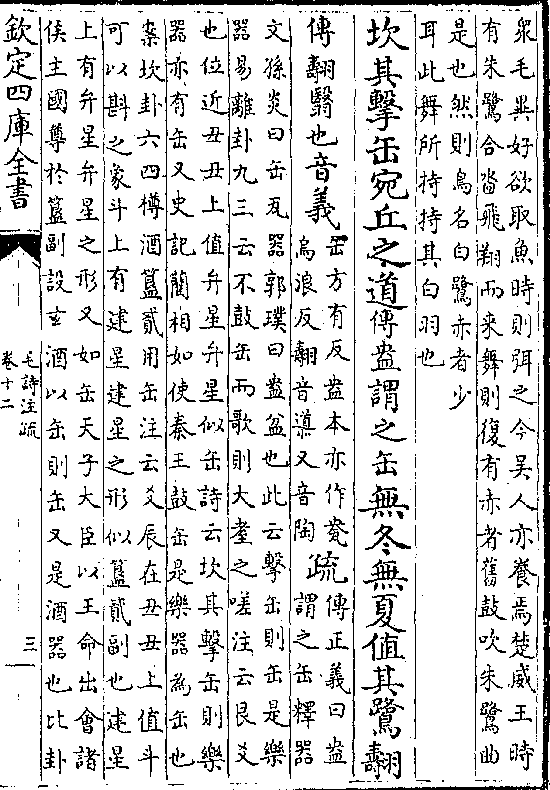 衆毛㲯㲯然與衆毛異好欲取魚時則弭之今吳人亦養焉楚威王時
有朱鷺合沓飛翔而来舞則復有赤者舊鼓吹朱鷺曲
是也然則鳥名白鷺赤者少
耳此舞所持持其白羽也
坎其擊缶宛丘之道傳盎謂之缶無冬無夏值其鷺翿
傳翿翳也音義缶方有反盎本亦作㼜
烏浪反翿音導又音陶
疏傳正義曰盎
謂之缶釋器
文孫炎曰缶瓦器郭璞曰盎盆也此云擊缶則缶是樂
器易離卦九三云不鼓缶而歌則大耋之嗟注云艮爻
也位近丑丑上值弁星弁星似缶詩云坎其擊缶則樂
器亦有缶又史記藺相如使秦王鼓缶是樂器為缶也
案坎卦六四樽酒簋貳用缶注云爻辰在丑丑上值斗
可以斟之象斗上有建星建星之形似簋貳副也建星
上有弁星弁星之形又如缶天子大臣以王命出會諸
侯主國尊於簋副設玄酒以缶則缶又是酒器也比卦
欽定四庫全書
毛詩注疏
卷十二
三